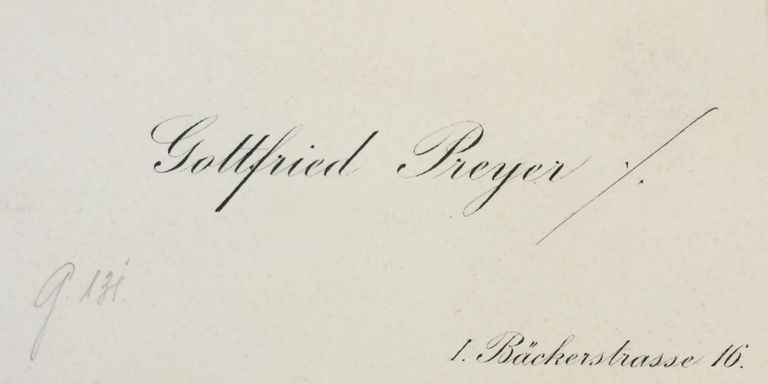 Gottfried Preyer ./.
I. Bäckerstrasse 16.